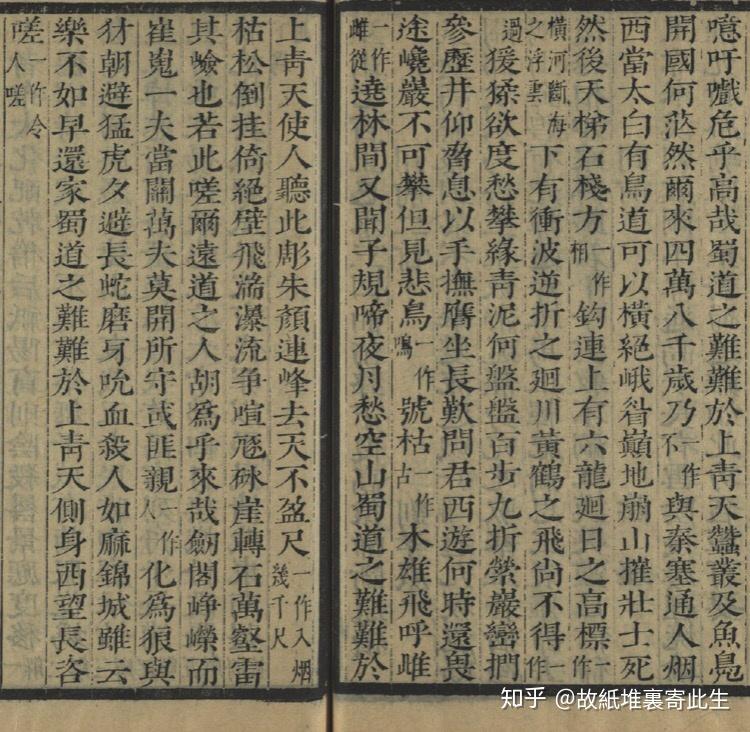 噫吁嚱危乎高哉蜀道之難難於上青天蠶叢及魚鳧
開國何茫然爾來四萬八千歲乃一作不與秦塞通人烟
西當太白有鳥道可以橫絕峨眉巔地崩山摧壯士死
然後天梯石棧方一作相鈎連上有六龍廻日之高標一作
橫河斷海之浮雲下有衝波逆折之廻川黃鶴之飛尚不得一作
過猨猱欲度愁攀緣青泥何盤盤百步九折縈巖巒捫
參歷井仰脅息以手撫膺坐長歎問君西遊何時還畏
途巉巖不可攀但見悲鳥一作鳴號枯一作古木雄飛呼雌
一作雌從遶林間又聞子規啼夜月愁空山蜀道之難難於
上青天使人聽此彫朱顏連峰去天不盈尺一作入烟幾千尺
枯松倒挂倚絕壁飛湍瀑流爭喧豗砯崖轉石萬壑雷
其嶮也若此嗟爾遠道之人胡為乎來哉劒閣崢嶸而
崔嵬一夫當關萬夫莫開所守或匪親一作人化為狼與
豺朝避猛虎夕避長蛇磨牙吮血殺人如麻錦城雖云
樂不如早還家蜀道之難難於上青天側身西望長咨
嗟一作令人嗟
知乎 @故紙堆裏寄此生